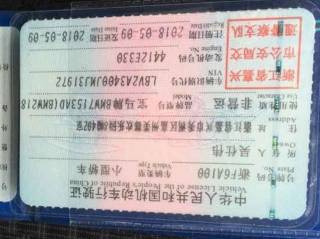 中华人民共和国机动车行驶证
Vehicle License of the People's Republic of China
号牌号码
Plate No.
浙F6A100
车辆类型
Vehicle Type
小型轿车
所有人
Owner
吴仕伟
住址
Address
浙江省嘉兴市
使用性质
Use Character
非营运
品牌型号
Model
宝马牌BMW7153AX(BMW218
车辆识别代号
VIN
LBV2A3400JMJ31972
发动机号码
Engine No.
4412E330
注册日期
Register Date
2018-05-09
发证日期
Issue Date
2018-05-09
浙江省嘉兴
市公安局交
通警察支队